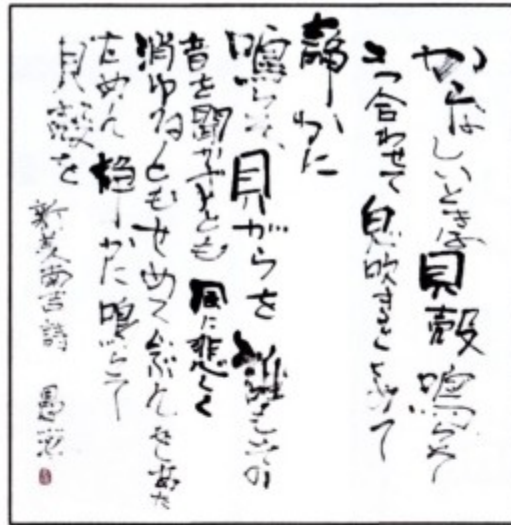 かなしいときは貝殻鳴らそ
二つ合わせて息吹きをこめて
静かに
鳴らそ、貝がらを 誰もその
音を聞かずとも 風に悲しく
消ゆるともせめてじぶんをあた
ためん 静かに鳴らそ
貝殻を
新美南吉詩